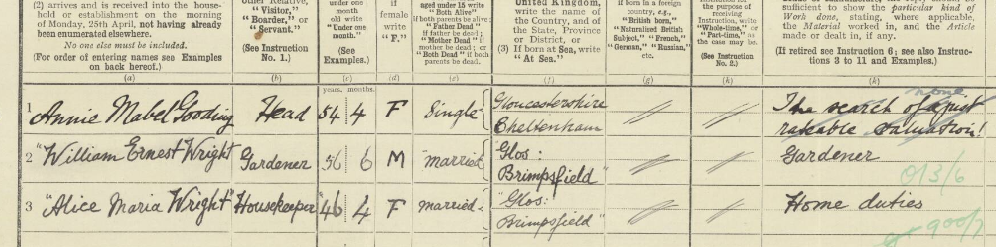 (2) arrives and is received into the household or establishment on the morning of Monday, 25th April, not having already been enumerated elsewhere.
No one else must be included.
(For order of entering names see Examples on back hereof.)
"Visitor,"
"Boarder," or
"Servant."
(See Instruction No. 1.)
under one month old write "Under one month."
(See Examples.)
if female write "F."
aged under 15 write "Both Alive"
if both parents be alive;
"Father Dead"
if father be dead;
"Mother Dead"
if mother be dead; or
"Both Dead" if both parents be dead.
United Kingdom, write the name of the Country, and of the State, Province or District, or
(3) If born at Sea, write "At Sea."
if born in a foreign country, e.g.,
"British born,"
"Naturalised British Subject," "French,"
"German," "Russian,"
etc.
purpose of receiving Instruction, write "Whole-time," or "Part-time," as the case may be.
(See Instruction No. 2.)
sufficient to show the particular kind of Work done, stating, where applicable, the Material worked in, and the Article made or dealt in, if any.
(If retired see Instruction 6; see also Instructions 3 to 11 and Examples.)
(a) (b) (c) (d) (e) (f) (g) (h) (k)
years. months.
none
1 Annie Mabel Gooding Head 54 4 F Single Gloucestershire Cheltenham The search of a just rateable valuation!
2 "William Ernest Wright Gardener 56 6 M married Glos: Brimpsfield" Gardener
013/6
3 "Alice Maria Wright" Housekeeper 46 4 F married "Glos: Brimpsfield" Home duties
900/7